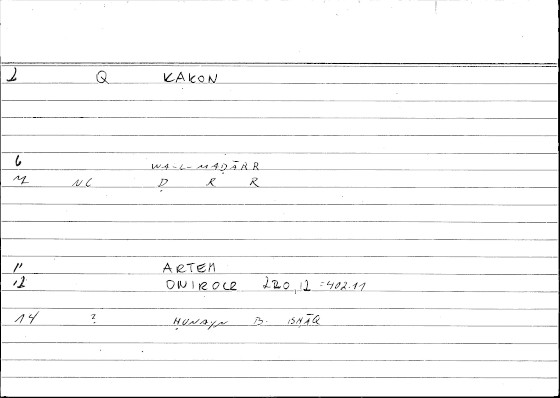 2 Q KAKON
6 WA-L-MAḌĀRR
M NC Ḍ R R
11 ARTEM
12 ONIROCR 220,12 = 402.11
14 ? ḤUNAYN B. ISḤĀQ